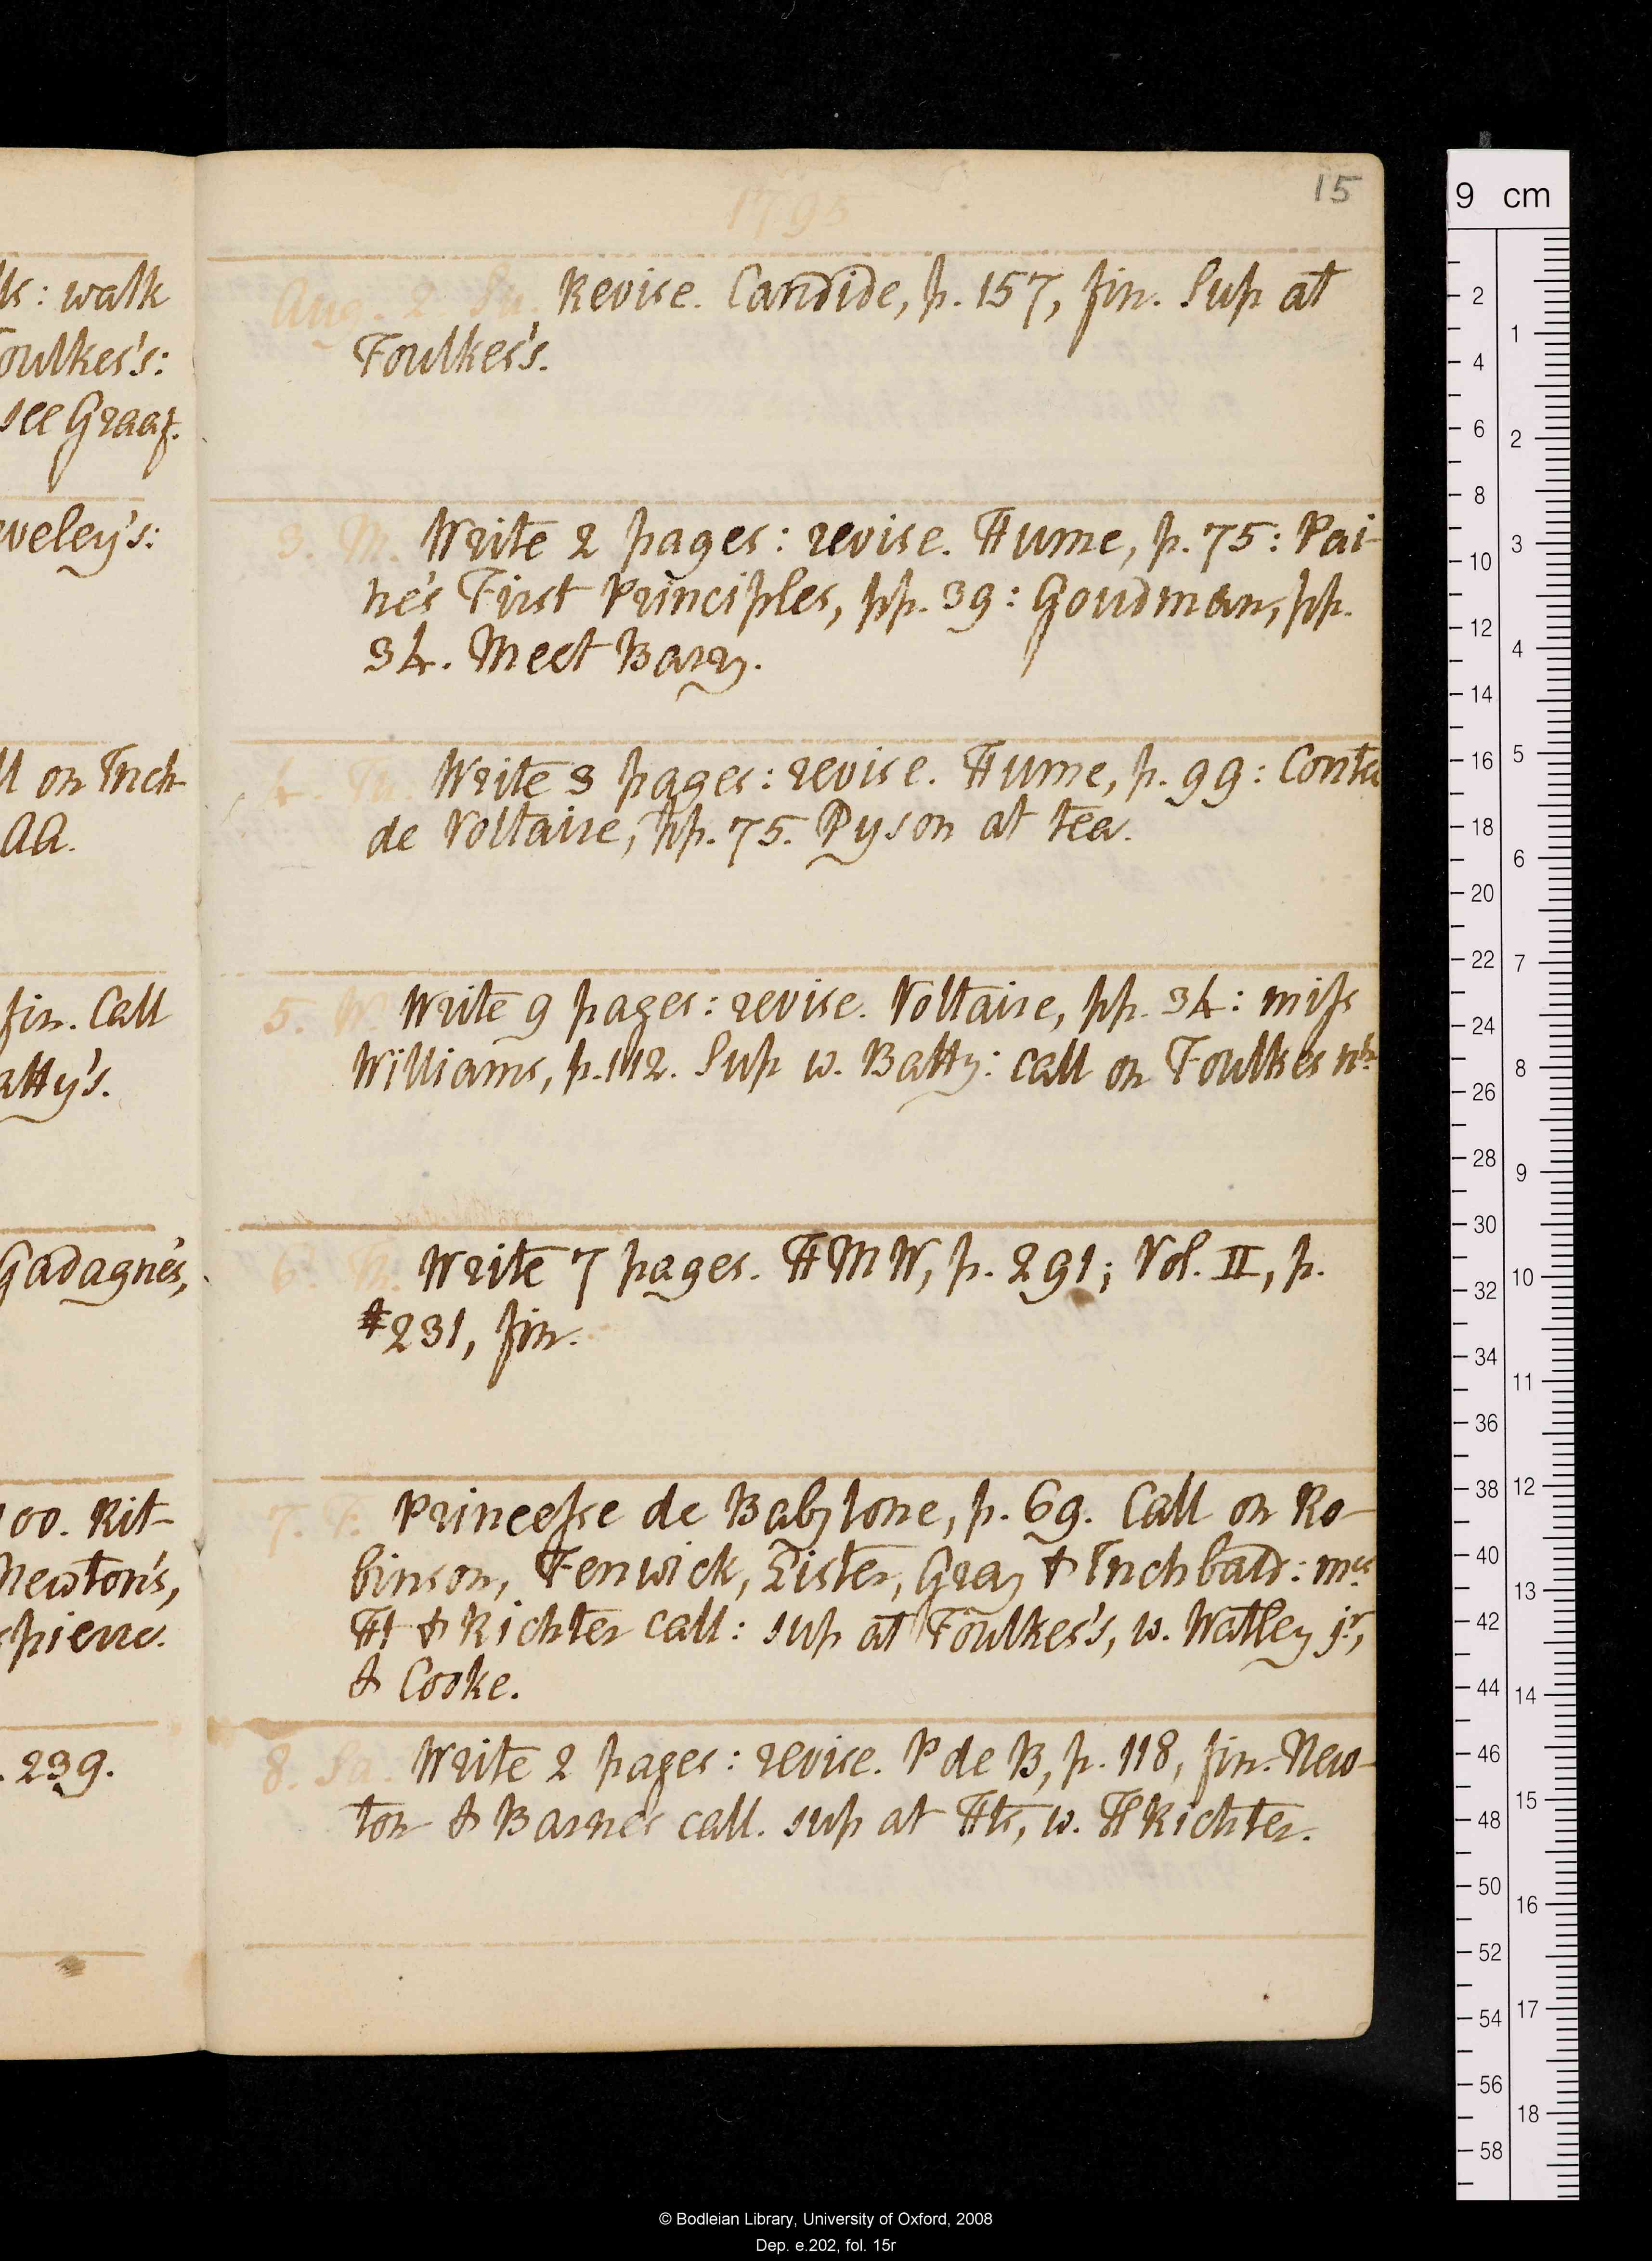 lk: walk
oulkes's:
see Graaf.
veley's:
ll on Inch-
AA.
fin. Call
atty's.
Gadagne's,
100. Rit-
Newton's,
spierre.
. 239.
15
1795
Aug. 2. Su. Revise. Candide, p. 157, fin. Sup at
Foulkes's.
3. M. Write 2 pages: revise. Hume, p. 75: Pai-
ne's First Principles, pp. 39: Goudman, pp.
34. Meet Barry.
4. Tu. Write 3 pages: revise. Hume, p. 99: Conte
de Voltaire, pp. 75. Dyson at tea.
5. W. Write 9 pages: revise. Voltaire, pp. 34: miss
Williams, p. 112. Sup w. Batty: call on Foulkes nh.
6. Th. Write 7 pages. HMW, p. 291; Vol. II, p.
231, fin.
7. F. Princesse de Babylone, p. 69. Call on Ro-
binson, Fenwick, Lister, Gray & Inchbald: mrs
Ht & Richter call: sup at Foulkes's, w. Watley jr,
& Cooke.
8. Sa. Write 2 pages: revise. P de B, p. 118, fin. New-
ton & Barnes call. sup at Hts, w. H Richter.
9 cm
2 4 6 8 10 12 14 16 18 20 22 24 26 28 30 32 34 36 38 40 42 44 46 48 50 52 54 56 58
1 2 3 4 5 6 7 8 9 10 11 12 13 14 15 16 17 18
© Bodleian Library, University of Oxford, 2008
Dep. e.202, fol. 15r